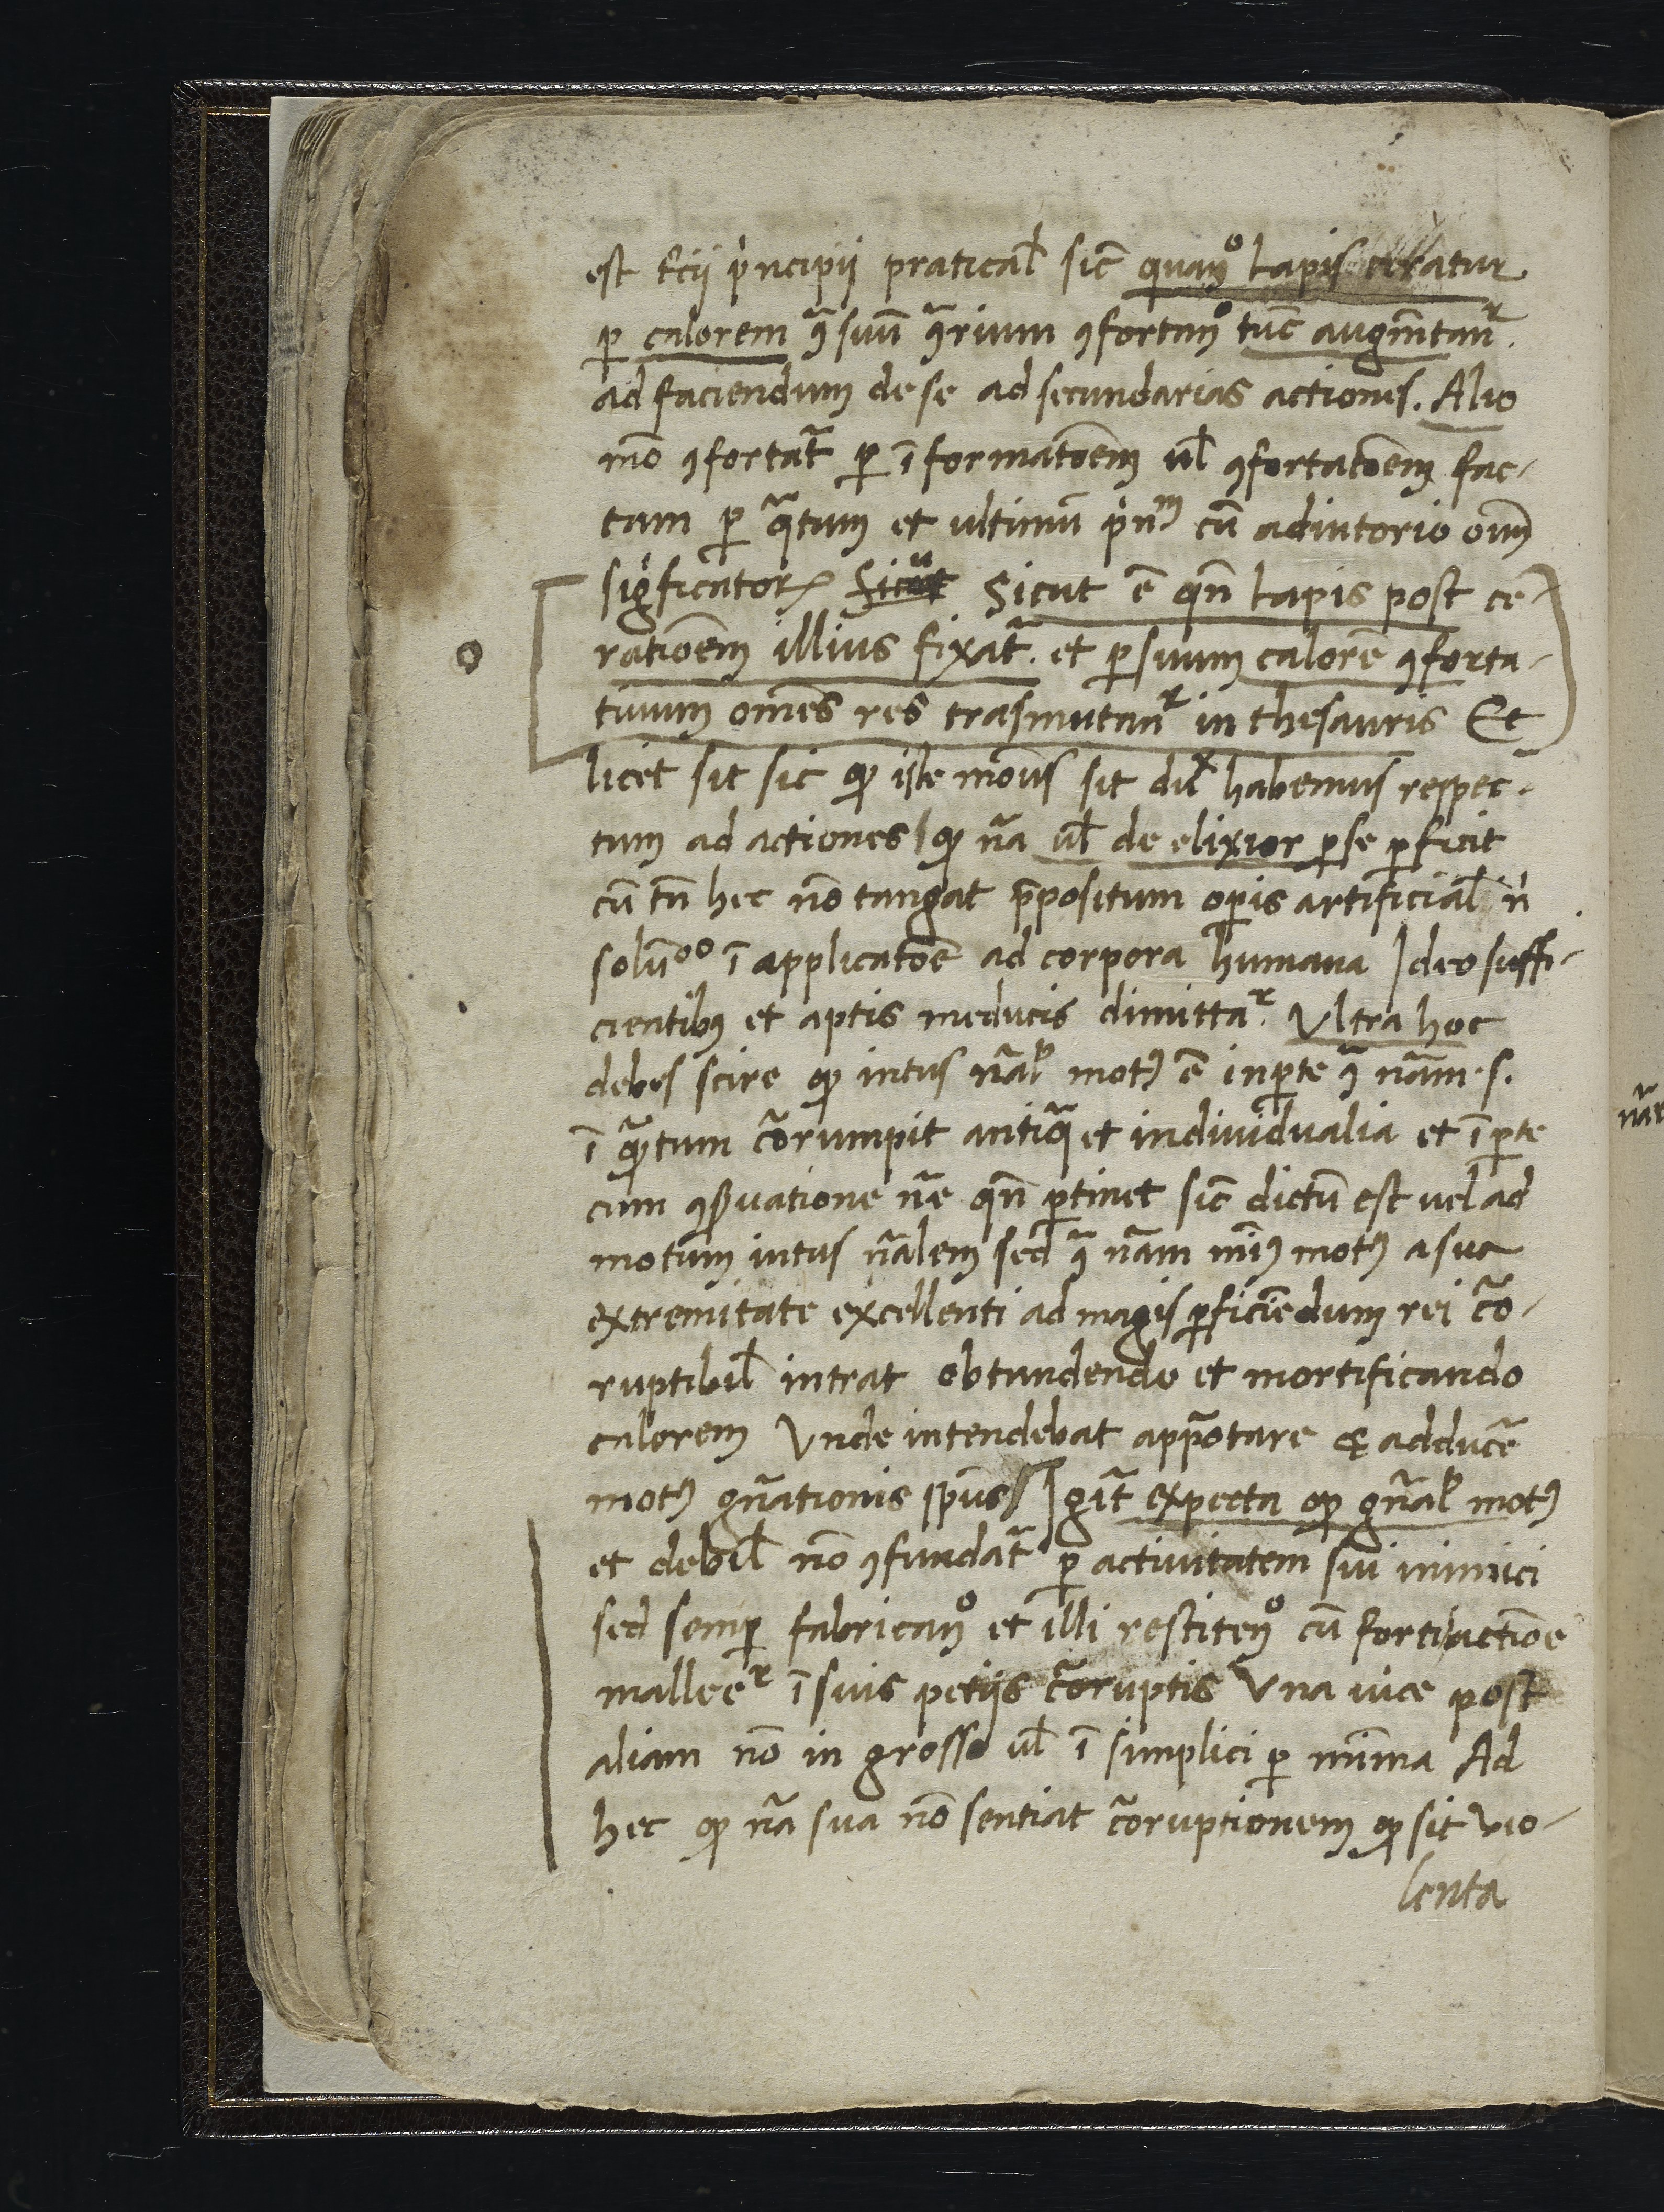 est t̃cij p̃ncipij pratical̃ sic̃ quan̄º lapis ceratur
ꝑ calorem q̃ suũ q̃rium ꝯfortan̄º tũc augm̃tanͬ.
ad faciendum de se ad secundarias actiones. Alio
mõ ꝯfortat̃ ꝑ ĩformatõem ul̃ ꝯfortatõem fac-
tam ꝑ q̃rtum et ultimũ p̃nᵐ cũ adiutorio oim̃
sigficatorꝝ Sicut ẽ qñ lapis post ce-
ratiõem illius fixat̃. et ꝑ suum calorẽ ꝯforta-
tiuum om̃es res trasmutanͬ in thesauris Et
licet sit sic ꝙ iste mõus sit dil̃ habemus respec-
tum ad actiones ꝙ ña ul̃ de elixior ꝑ se ꝑficit
cũ tñ hec nõ tangat p̃positum oꝑis artificial̃ ñ
solũºº ĩ applicatõe ad corpora humana Ideo suffi-
cientibꝯ et aptis medicis dimittaͬ. Vltra hoc
debes scire ꝙ intus ñal̃ motꝯ ẽ in ꝑte q̃ ñam .s.
ĩ q̃rtum cõrumpit antiq̃ et indiuidualia et ĩ ꝑte
cum ꝯseruatione ñe qñ ꝑtinet sic̃ dictũ est uel ad
motum intus ñalem sed q̃ ñam m̃iꝯ motꝯ a sua
extremitate excellenti ad magis ꝑficiẽdum rei cõ-
ruptibil̃ intrat obtundendo et mortificando
calorem Vnde intendebat app̃otare & adducẽ
motꝯ gñationis ip̃ius Igit̃ expecta ꝙ gñal̃ motꝯ
et debil̃ nõ ꝯfundat̃ ꝑ actiuitatem sui inimici
sed semꝑ fabrican̄º et illi restiten̄º cũ forti actiõe
malleeͬ ĩ suis petijs cõruptis Vna uice post
aliam nõ in grosso ul̃ ĩ simplici ꝑ minĩma Ad
hec ꝙ ña sua nõ sentiat cõruptionem ꝙ sit vio-
lenta